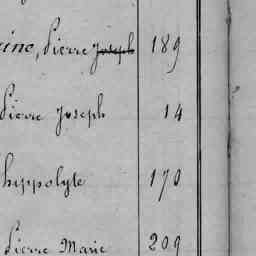 Pierre Joseph 189
Pierre Joseph 14
hippolyte 170
Pierre Marie 209